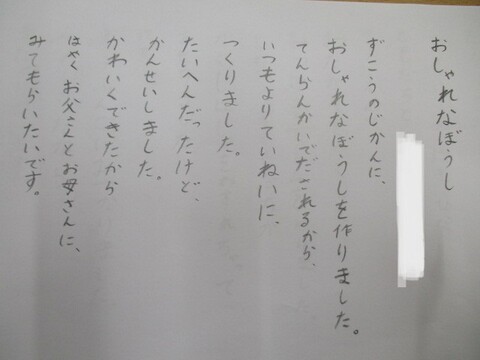 おしゃれなぼうし
ずこうのじかんに、
おしゃれなぼうしを作りました。
てんらんかいでだされるから、
いつもよりていねいに、
つくりました。
たいへんだったけど、
かんせいしました。
かわいくできたから
はやくお父さんとお母さんに、
みてもらいたいです。